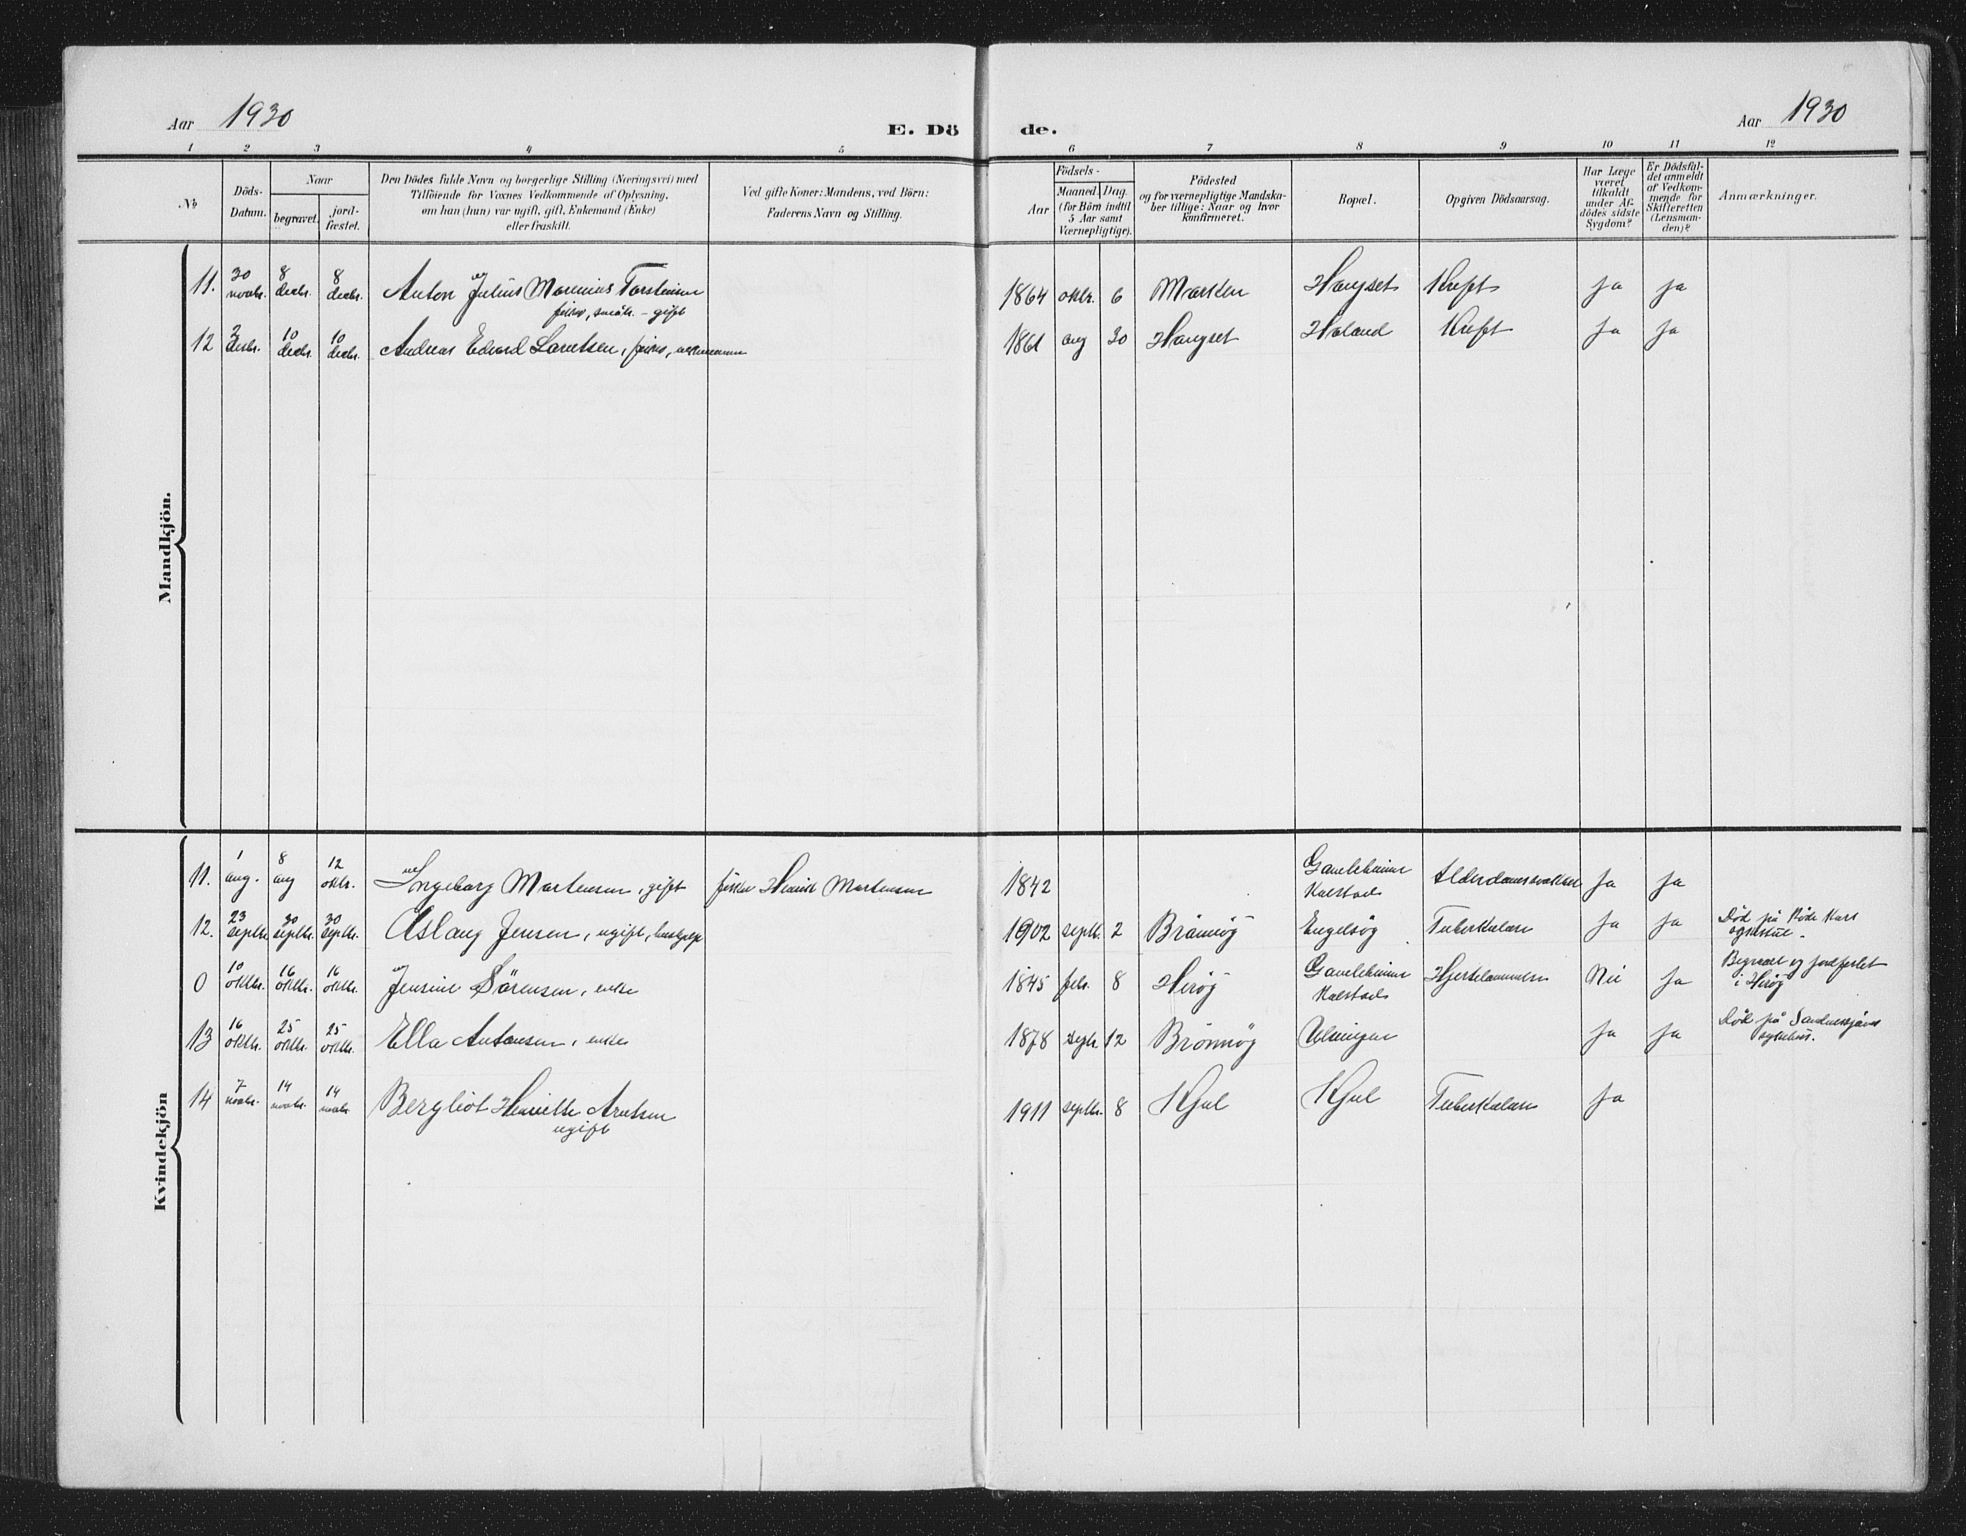 Aar 1930
E. Dö de.
Aar 1930
1 2 3 4 5 6 7 8 9 10 11 12
No
Döds-
Datum.
Naar
begravet.
jord-
fæstet.
Den Dödes fulde Navn og borgerlige Stilling (Næringsvei) med
Tilföiende for Voxnes Vedkommende af Oplysning,
om han (hun) var ugift, gift, Enkemand (Enke)
eller fraskilt.
Ved gifte Koner: Mandens, ved Börn:
Faderens Navn og Stilling.
Födsels-
Aar
Maaned. Dag.
(for Börn indtil
5 Aar samt
Værnepligtige).
Födested
og for værnepligtige Mandska-
ber tillige: Naar og hvor
konfirmeret.
Bopæl.
Opgiven Dödsaarsag.
Har Læge
været
tilkaldt
under Af-
dödes sidste
Sygdom?
Er Dödsfal-
det anmeldt
af Vedkom-
mende for
Skifteretten
(Lensman-
den)?
Anmærkninger.
Mandkjön.
11. 30 novbr. 8 decbr. 8 decbr. Anton Julius Torstensen 1864 oktr. 6 Kreft Ja Ja
gift
12 2 decbr. 10 decbr. 10 decbr. Andreas Edvard 1861 aug 30 Kreft Ja Ja
Kvindekjön
11. 1 aug. 8 aug 12 oktr. Ingeborg Mortensen, gift fisker Mortensen 1842 Gamleheimen Kalstad Ja Ja
12. 23 septbr. 30 septbr. 30 septbr. Aslaug Jensen, ugift, 1902 septb. 2 Brönnöy Tuberkulose Ja Ja Död på Röde Kors
0 10 oktbr. 16 oktbr. 16 oktbr. Jensine Sörensen, enke 1845 febr. 8 Heröy Gamleheimen Kalstad Nei Ja Begravet og jordfestet
i Heröy
13 16 oktbr. 25 oktbr. 25 oktbr. Ella Antonsen, enke 1878 septr. 12 Brönnöy Ja Ja Död på Sandnessjöen
sykehus.
14 7 novbr. 14 novbr. 14 novbr. Bergliot Henriette Arntsen 1911 septbr. 8 Tuberkulose Ja
ugift